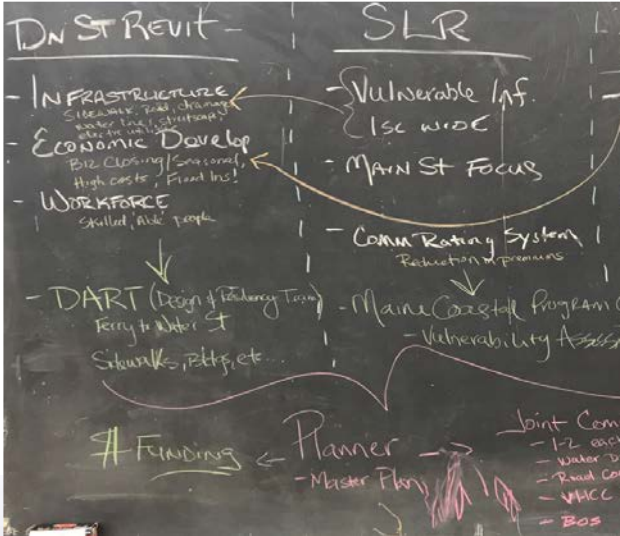 DN ST REVIT -
- INFRASTRUCTURE
SIDEWALK, Road, drainage
water lines, streetscape
electric utilities
- ECONOMIC DEVELOP
Biz Closing/Seasonal,
High costs, Flood Ins!
- WORKFORCE
Skilled, 'Able' people
- DART (Design & Resiliency Team)
Ferry to Water St
Sidewalks, Bldgs, etc...
SLR
- Vulnerable Inf.
ISL WIDE
- MAIN ST FOCUS
- Comm Rating System
Reduction in premiums
- Maine Coastal Program (
- Vulnerability Assess
$ FUNDING ← Planner →
- Master Plan
Joint Com
- 1-2 each
- Water D
- Road Co
- VHCC
- BOS